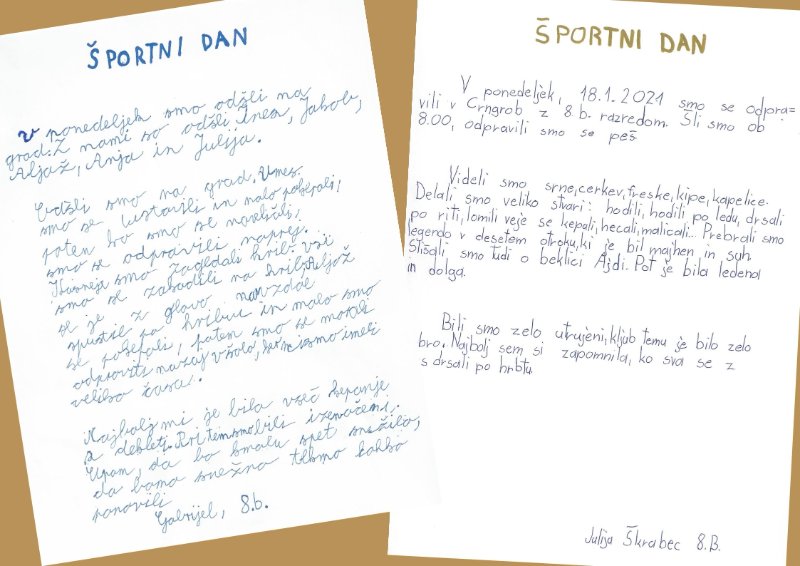 ŠPORTNI DAN
V ponedeljek smo odšli na
grad. Z nami so odšli Inea, Jakob,
Aljaž, Anja in Julija.
Odšli smo na grad. Vmes
smo se ustavili in malo pokepali,
poten ko smo se naveličali,
smo se odpravili naprej.
smo zagledali hrib. Vsi
smo se zabavali na hribu. Aljaž
se je z glavo navzdol
spustil po hribu in malo smo
se pokepali, potem smo se morali
odpraviti nazaj v šolo, ker nismo imeli
veliko časa.
Najbolj mi je bilo všeč kepanje
z dekleti. Pri tem smo bili izenačeni.
Upam, da bo kmalu spet snežilo,
da bomo snežno tekmo lahko
ponovili
Gabrijel, 8.b.
ŠPORTNI DAN
V ponedeljek, 18.1.2021 smo se odpra=
vili v Crngrob z 8.b. razredom. Šli smo ob
8.00, odpravili smo se peš
Videli smo srne, cerkev, freske, kipe, kapelice.
Delali smo veliko stvari: hodili, hodili po ledu, drsali
po riti, lomili veje se kepali, hecali, malicali... Prebrali smo
legendo v desetem otroku, ki je bil majhen in suh
Slišali smo tudi o beklici Ajdi. Pot je bila ledena
in dolga.
Bili smo zelo utrujeni, kljub temu je bilo zelo
bro. Najbolj sem si zapomnila, ko sva se z
s drsali po hrbtu
Julija Škrabec 8.B.